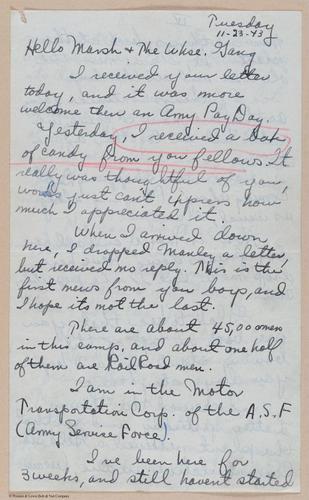 Tuesday
11-23-43
Hello Marsh & The Whse. Gang
I received your letter
today, and it was more
welcome then an Army Pay Day.
Yesterday, I received a box
of candy from you fellows. It
really was thoughtful of you,
words just can't express how
much I appreciated it.
When I arrived down
here, I dropped Manley a letter,
but received no reply. This is the
first news from you boys, and
I hope its not the last.
There are about 45,000 men
in this camp, and about one half
of them are RailRoad men.
I am in the Motor
Transportation Corp. of the A.S.F
(Army Service Force).
I've been here for
3 weeks, and still havent started